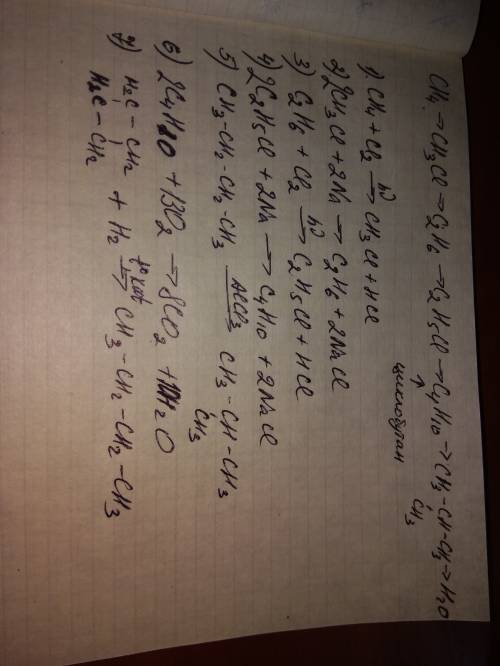 CH4 → CH3Cl → C2H6 → C2H5Cl → C4H10 → CH3-CH-CH3 → H2O
↑
CH3
циклобутан
1) CH4 + Cl2 hν→ CH3Cl + HCl
2) 2CH3Cl + 2Na → C2H6 + 2NaCl
3) C2H6 + Cl2 hν→ C2H5Cl + HCl
4) 2C2H5Cl + 2Na → C4H10 + 2NaCl
5) CH3-CH2-CH2-CH3 AlCl3→ CH3-CH-CH3
CH3
6) 2C4H10 + 13O2 → 8CO2 + 10H2O
7) H2C - CH2
H2C - CH2 + H2 t°kat→ CH3-CH2-CH2-CH3